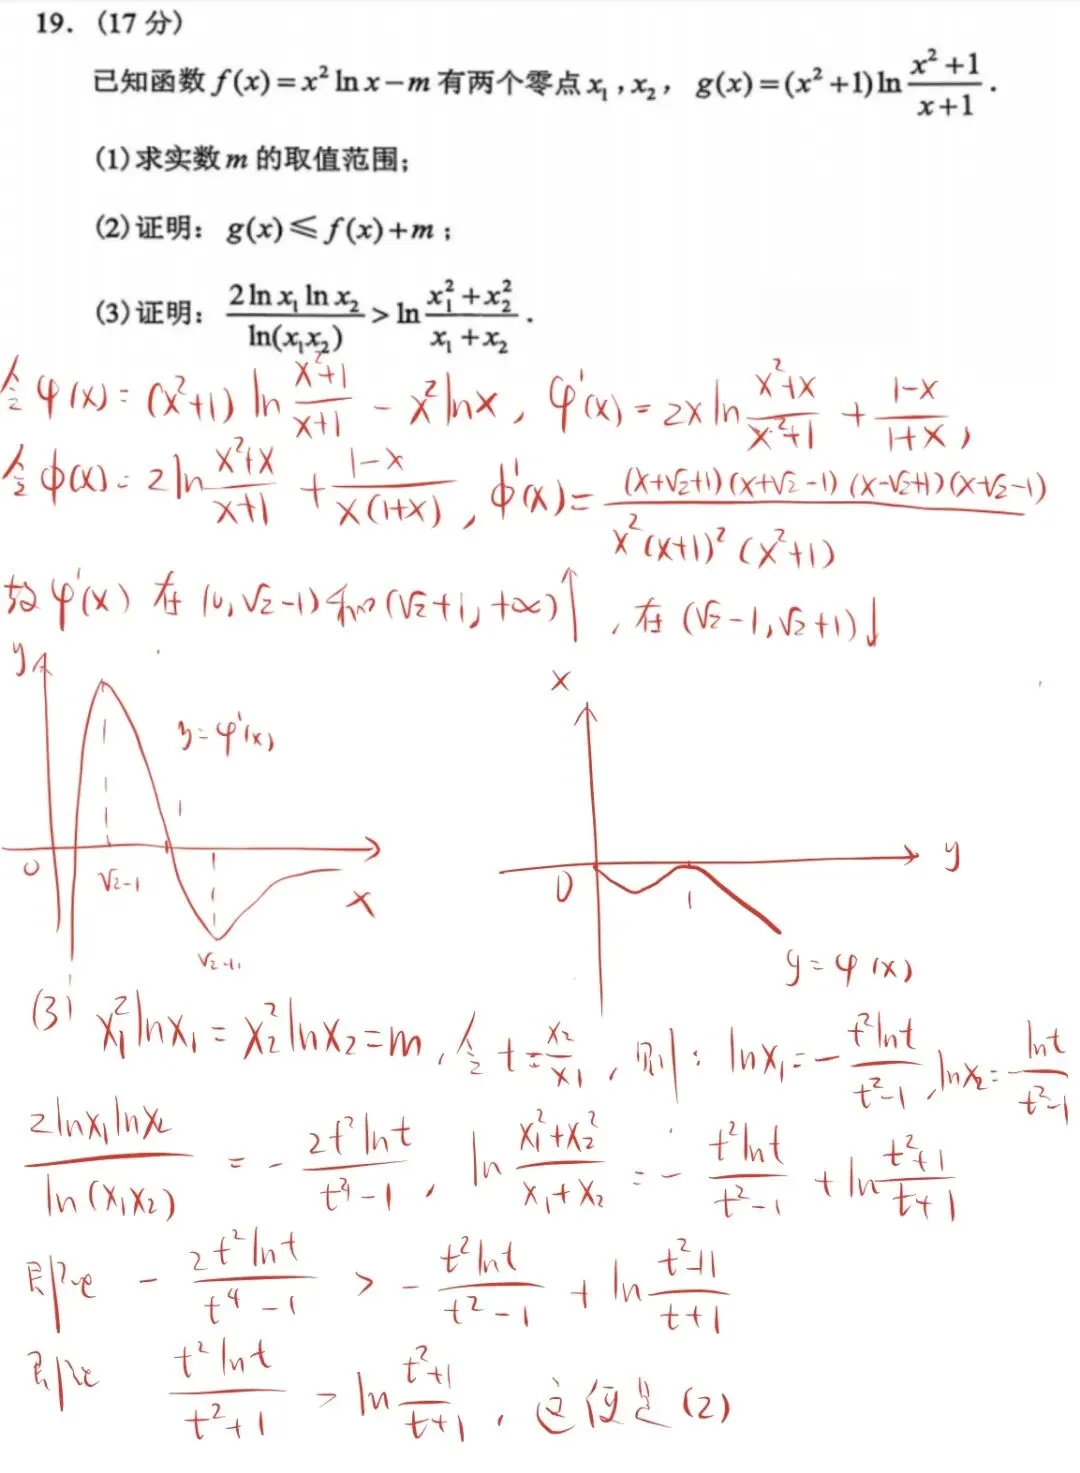 19. (17 分)
已知函数 f(x)=x² ln x−m 有两个零点 x₁,x₂, g(x)=(x²+1)ln (x²+1)/(x+1).
(1)求实数 m 的取值范围;
(2)证明: g(x)⩽f(x)+m;
(3)证明: (2ln x₁ ln x₂)/(ln(x₁x₂)) > ln (x₁²+x₂²)/(x₁+x₂).
令 φ(x)=(x²+1) ln (x²+1)/(x+1) − x²lnx, φ'(x)=2x ln (x²+x)/(x²+1) + (1−x)/(1+x),
令 ϕ(x)=2ln (x²+x)/(x+1) + (1−x)/(x(1+x)), ϕ'(x)= (x+√2+1)(x+√2−1)(x−√2+1)(x−√2−1)/(x²(x+1)²(x²+1))
故 φ'(x) 在 (0,√2−1)和(√2+1,+∞)↑, 在 (√2−1,√2+1)↓
y
y=φ'(x)
1
0
√2−1
√2+1
x
x
y
0
1
y=φ(x)
(3) x₁²lnx₁=x₂²lnx₂=m, 令 t=x₂/x₁, 则: lnx₁=−(t²lnt)/(t²−1), lnx₂=−(lnt)/(t²−1)
(2lnx₁lnx₂)/(ln(x₁x₂)) = −(2t²lnt)/(t⁴−1), ln (x₁²+x₂²)/(x₁+x₂) = −(t²lnt)/(t²−1) + ln (t²+1)/(t+1)
即证 −(2t²lnt)/(t⁴−1) > −(t²lnt)/(t²−1) + ln (t²+1)/(t+1)
即证 (t²lnt)/(t²+1) > ln (t²+1)/(t+1), 这便是(2)